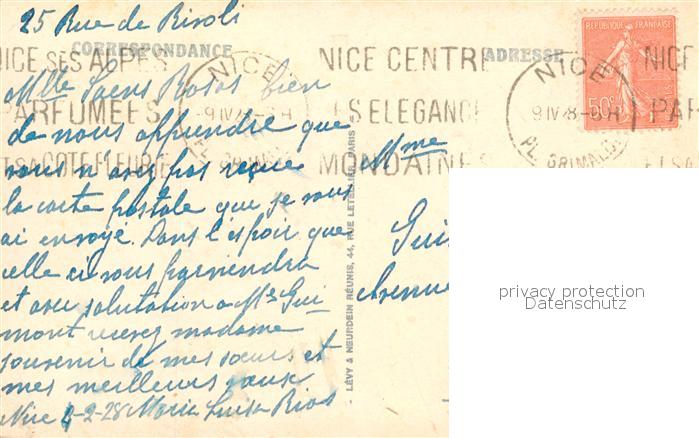 25 Rue de Rivoli
CORRESPONDANCE
ADRESSE
NICE SES ALPES
PARFUMEES
ET SA COTE FLEURIE
NICE
9 IV 28
NICE CENTRE
ES ELEGANCE
MONDAINES
NICE
9 IV 28
PL. GRIMALDI
NICE
PAR
ET SA
REPUBLIQUE FRANÇAISE
50c
Mlle Saens Rosas bien
de nous apprendre que
vous n'avez pas reçue
la carte postale que je vous
ai envoyé. Dans l'espoir que
elle ci vous parviendra
et avec salutation a Mr Gui
mont recevez madame
souvenir de mes sœurs et
mes meilleurs vœux
Nice 4-2-28 Maria Luisa Rios
LÉVY & NEURDEIN RÉUNIS, 44, RUE LETELLIER, PARIS
Mme
Gui
Avenue
privacy protection
Datenschutz